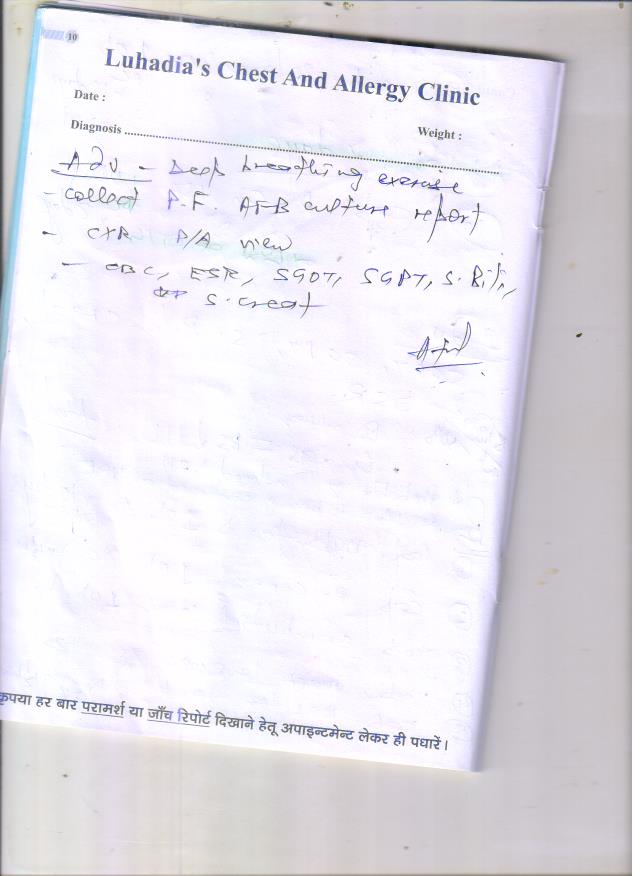 10
Luhadia's Chest And Allergy Clinic
Date :
Diagnosis ........ Weight :
Adv - Deep breathing exercise
- collect P.F. AFB culture report
- CXR P/A view
- CBC, ESR, SGOT, SGPT, S. Bili,
S. creat
कृपया हर बार परामर्श या जाँच रिपोर्ट दिखाने हेतू अपाइन्टमेन्ट लेकर ही पधारें।